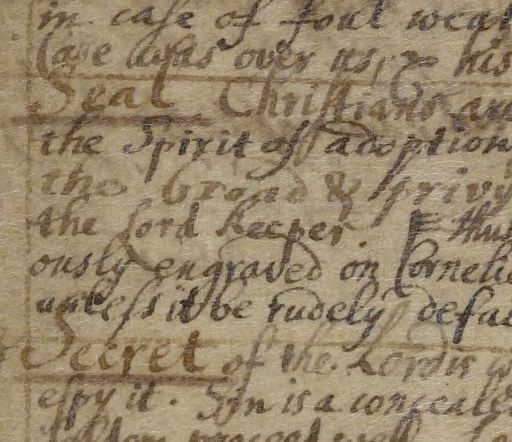 in case of foul weat
Case was over us, & his
Seal. Christians are
the Spirit of adoption
the broad & privy
the Lord keeper. thus
ously engraved on Cornelia
unless it be rudely defac
Secret of the Lord is w
espy it. Sin is a conceale